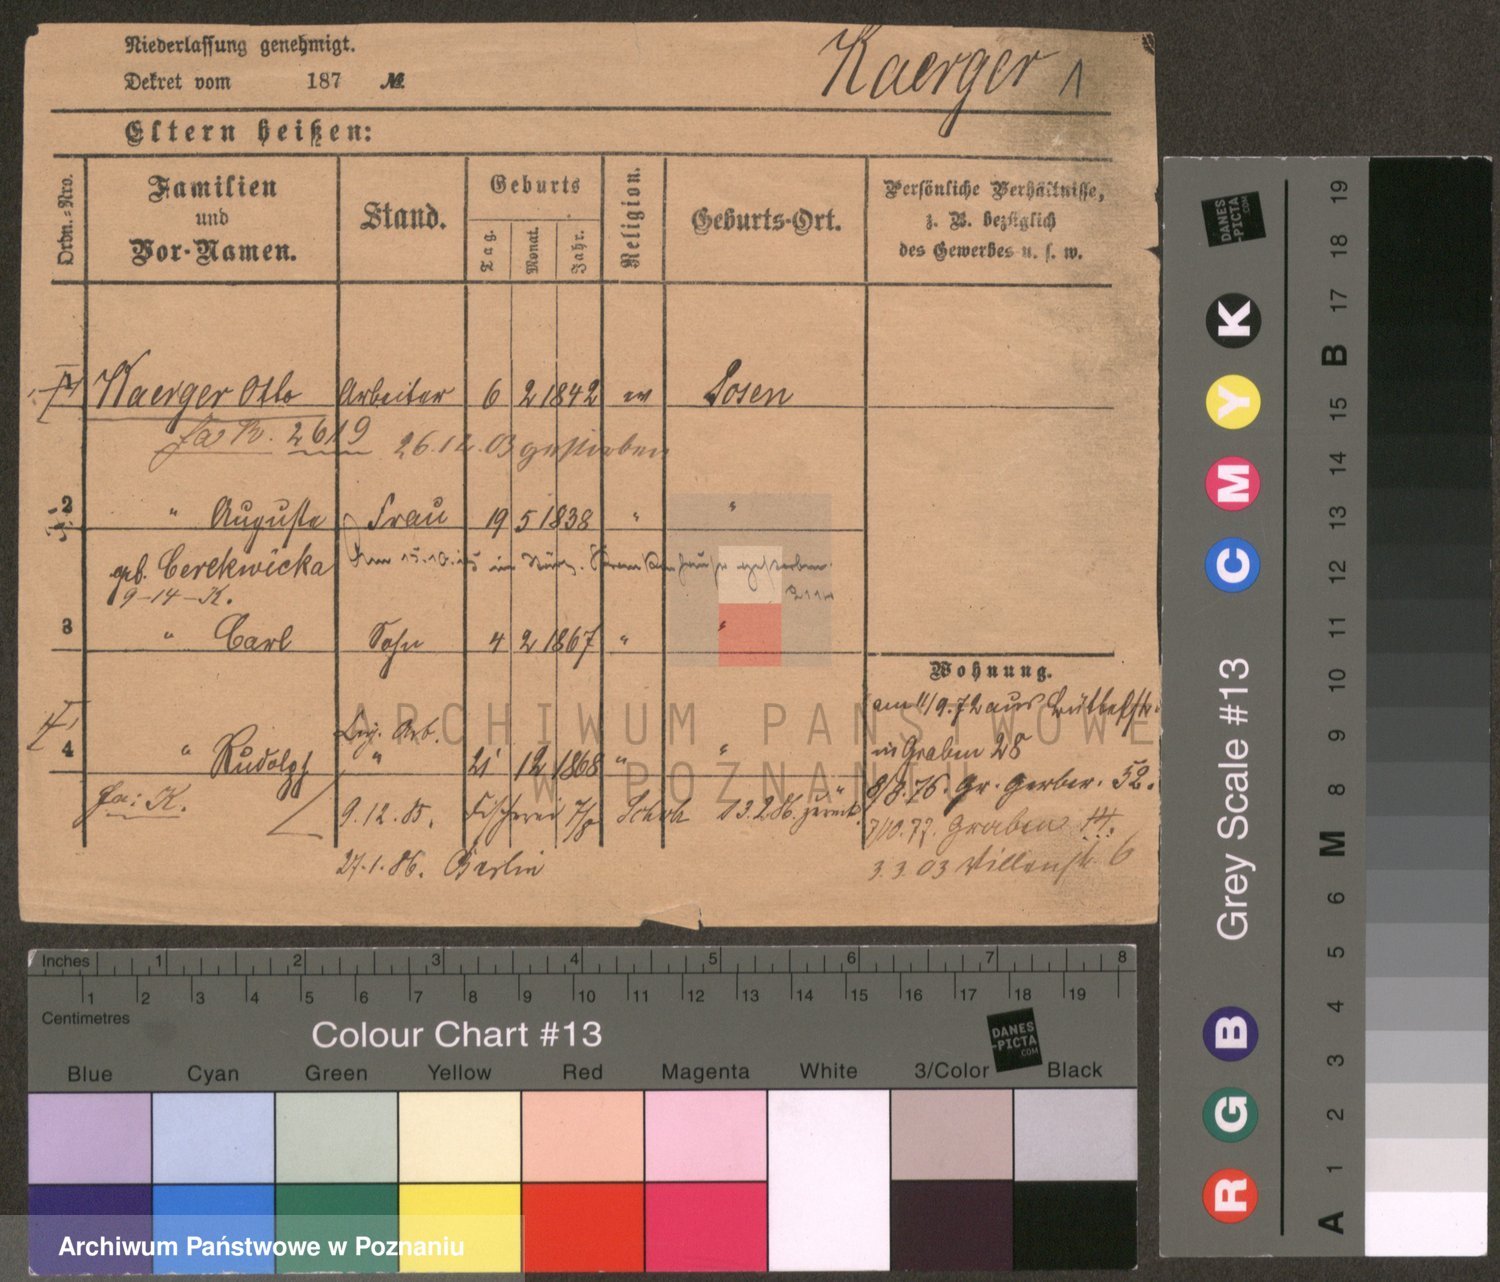 Niederlassung genehmigt.
Dekret vom 187 №
Kaerger 1
Eltern heißen:
Ordn.=Nro.
Familien
und
Vor-Namen.
Stand.
Geburts
Tag.
Monat.
Jahr.
Religion.
Geburts-Ort.
Persönliche Verhältnisse,
z. B. bezüglich
des Gewerbes u. s. w.
1 Kaerger Otto Arbeiter 6 2 1842 ev Posen
2619 26.12.03 gestorben
2 " Auguste Frau 19 5 1838 " "
geb. Cerekwicka
9-14-K.
3 " Carl Sohn 4 2 1867 " "
Wohnung.
4 " Rudolph " 21 12 1868 " "
in Graben 28
Gr. Gerber. 52.
9.12.85. 13.2.86. zurück
7/10.77. Graben
27.1.86. Berlin
3.3.03 6
ARCHIWUM PAŃSTWOWE
W POZNANIU
Inches 1 2 3 4 5 6 7 8
1 2 3 4 5 6 7 8 9 10 11 12 13 14 15 16 17 18 19
Centimetres
Colour Chart #13
DANES
-PICTA
.COM
Blue Cyan Green Yellow Red Magenta White 3/Color Black
Archiwum Państwowe w Poznaniu
DANES
-PICTA
.COM
R G B Grey Scale #13 C M Y K
A 1 2 3 4 5 6 M 8 9 10 11 12 13 14 15 B 17 18 19